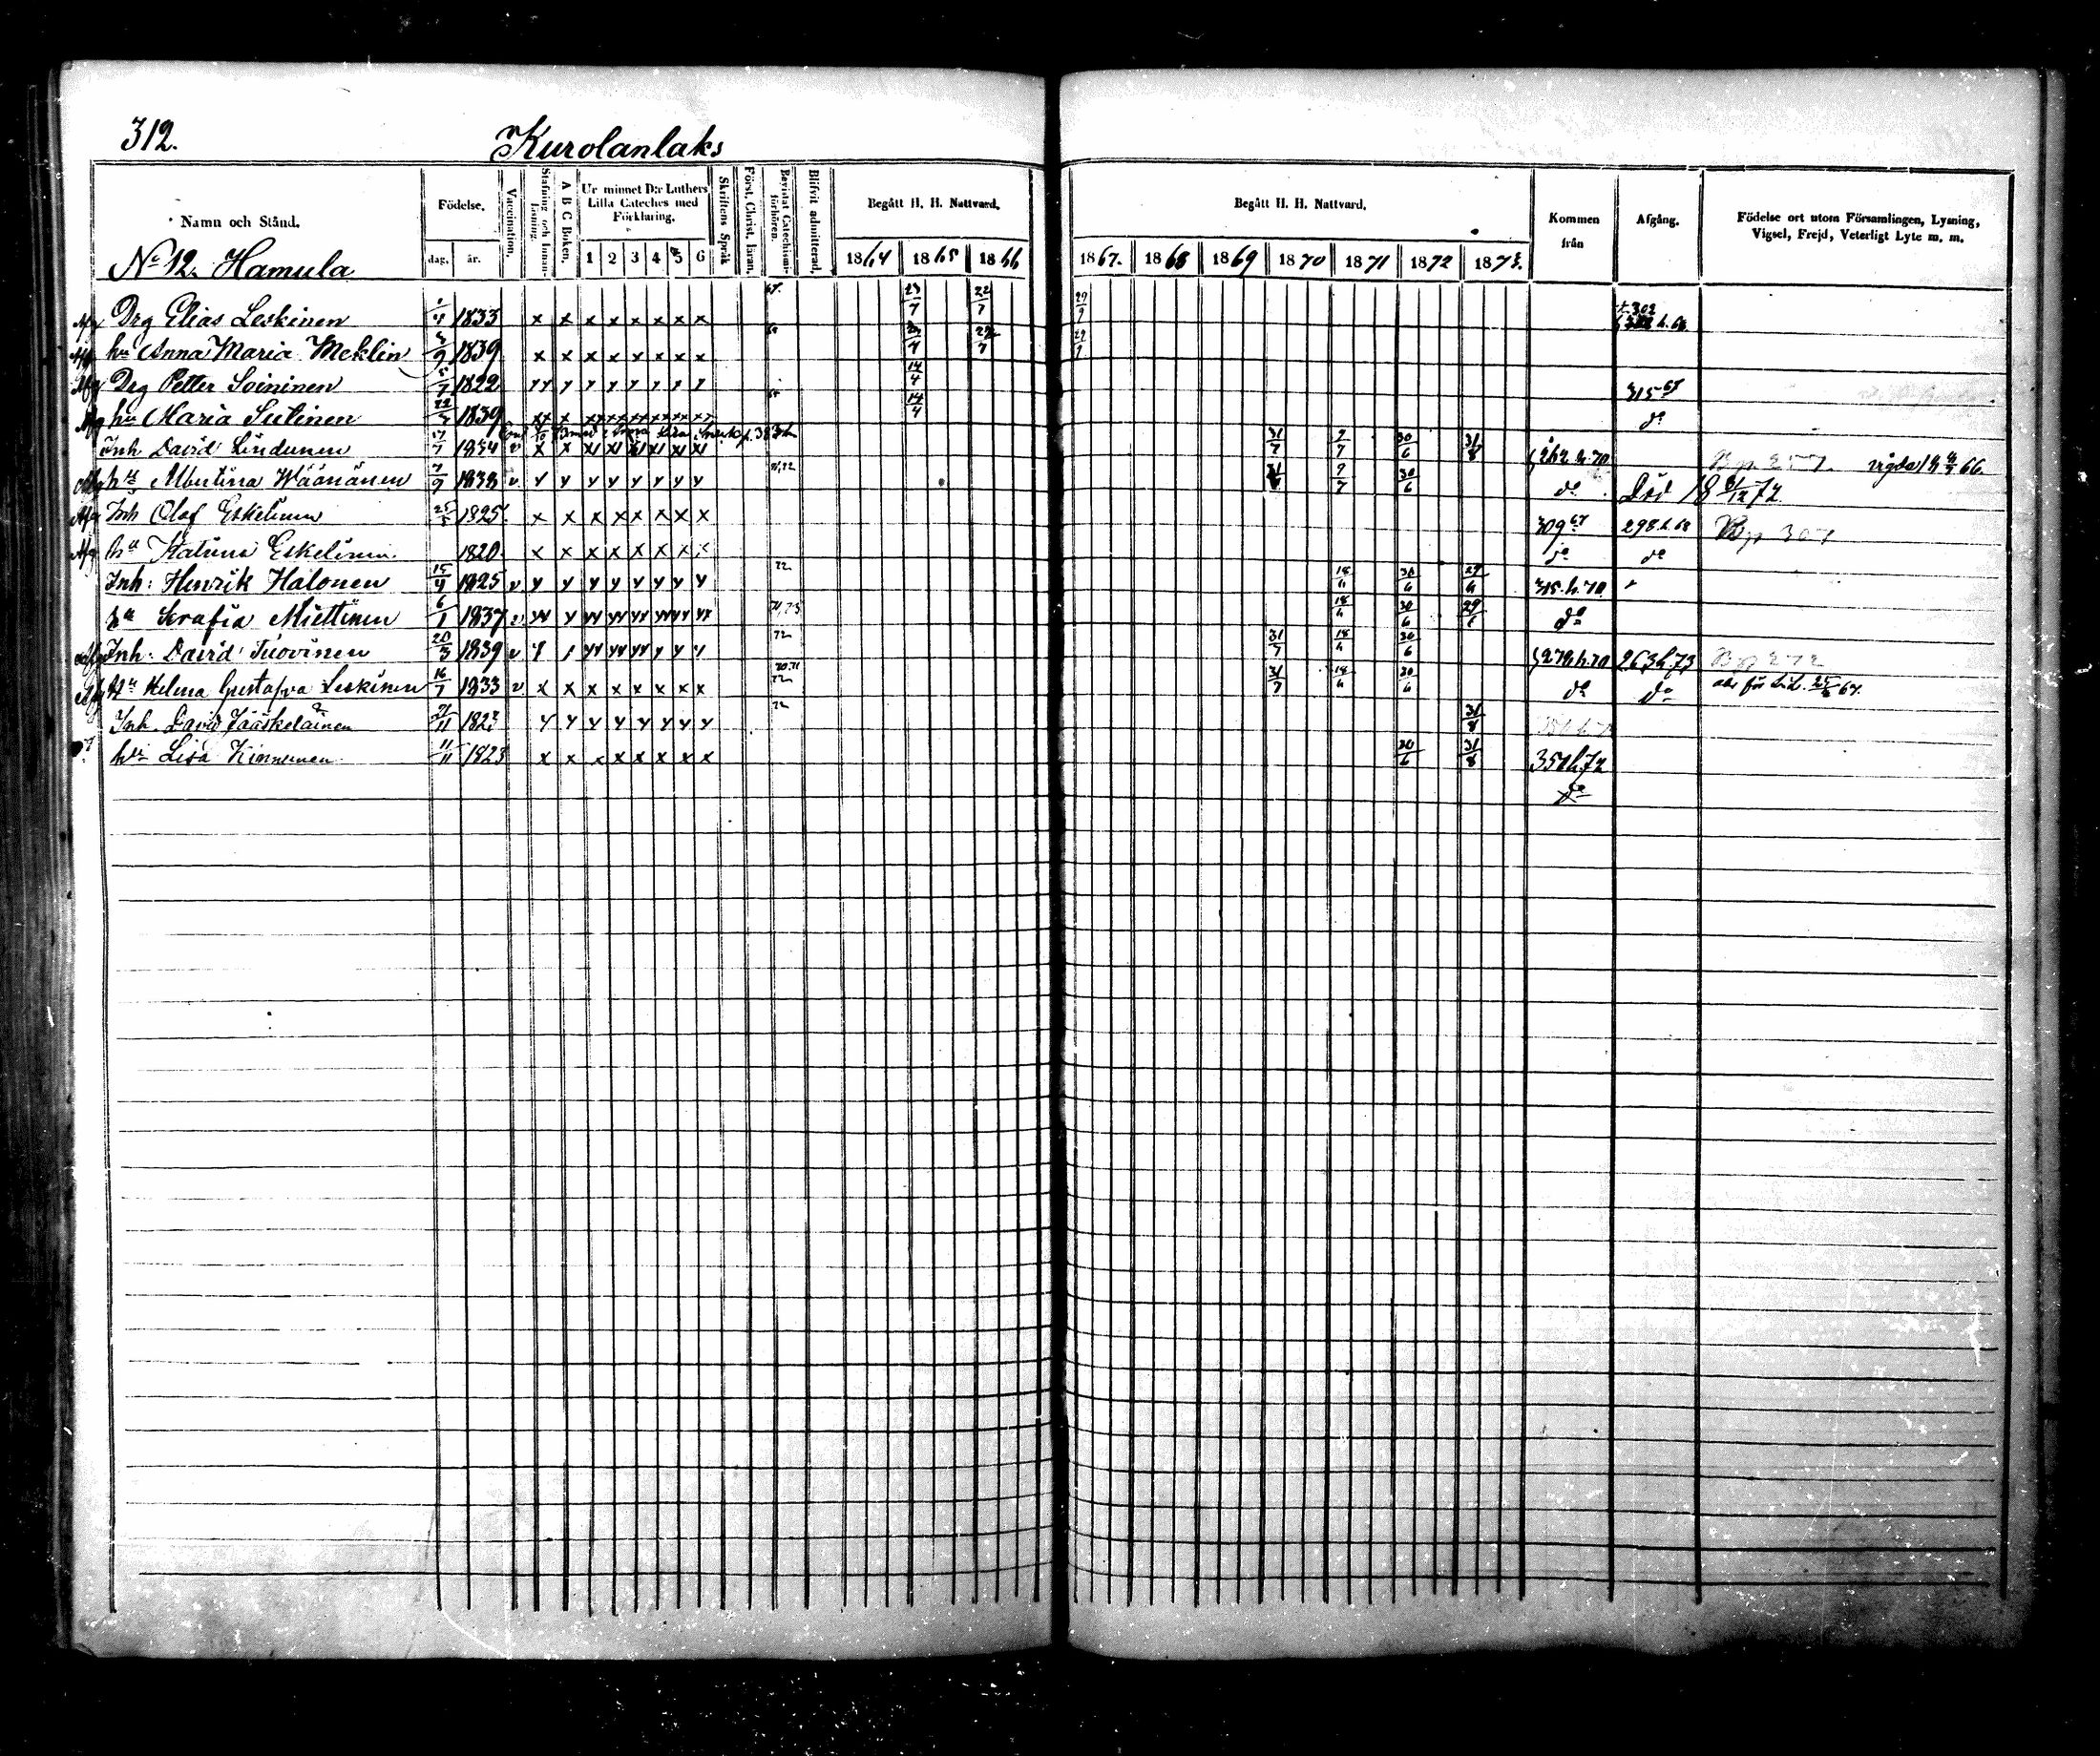 312. Kurolanlaks
Namn och Stånd.
Födelse.
dag. år.
Vaccination.
Stafning och Innan-läsning.
A B C Boken.
Ur minnet D:r Luthers Lilla Cateches med Förklaring.
1 2 3 4 5 6
Skriftens Språk
Först. Christ. läran.
Bevistat Catechismi-förhören.
Blifvit admitterad.
Begått H. H. Nattvard.
1864 1865 1866
Begått H. H. Nattvard.
1867. 1868 1869 1870 1871 1872 1873.
Kommen från
Afgång.
Födelse ort utom Församlingen, Lysning, Vigsel, Frejd, Veterligt Lyte m. m.
No 12. Hamula
Drg Elias Leskinen 1833 x x x x x x x x 23/7 22/7 29/9
hu Anna Maria Meklin 1839 x x x x x x x x 22/7
Drg Petter Soininen 1822 14/4 315
hu Maria Sutinen 22/3 1839 14/4 do
Inh David Lindunen 17/7 1834 v x x 31/7 9/7 30/6 31/8 262 h. 70
hu Albertina Wäänänen 7/9 1838 v. 71,72 31/7 9/7 30/6 do Död 18 /12 72 vigda 18 66
Inh Olof Eskelinen 25/5 1825 x x x x x x x x 309 67 298 h. 68
hu Katrina Eskelinen 1820 x x x x x x x x do do
Inh: Henrik Halonen 15/4 1825 v. 72 18/6 30/6 29/6 315. h. 70
hu Serafia Miettinen 6/1 1837 v. 18/6 30/6 29/6 do
Inh: David Tuovinen 20/3 1839 v 72 31/7 18/6 30/6 278 h. 70 263 h. 73 Bp 272
Hu Helena Gustafva Leskinen 16/7 1833 v. x x x x x x x x 70,71 72 31/7 18/6 30/6 do do
Inh. David Jääskeläinen 21/11 1827 72 31/8
hu Lisa Kinnunen 11/11 1823 x x x x x x x x 30/6 31/8 350 h. 72
do